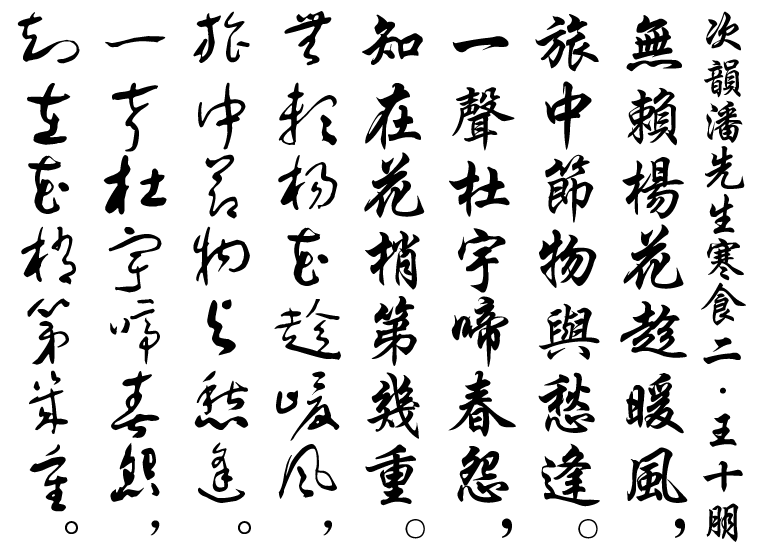 次韻潘先生寒食二·王十朋
無賴楊花趁暖風，
旅中節物與愁逢。
一聲杜宇啼春怨，
知在花梢第幾重。
無賴楊花趁暖風，
旅中節物與愁逢。
一聲杜宇啼春怨，
知在花梢第幾重。